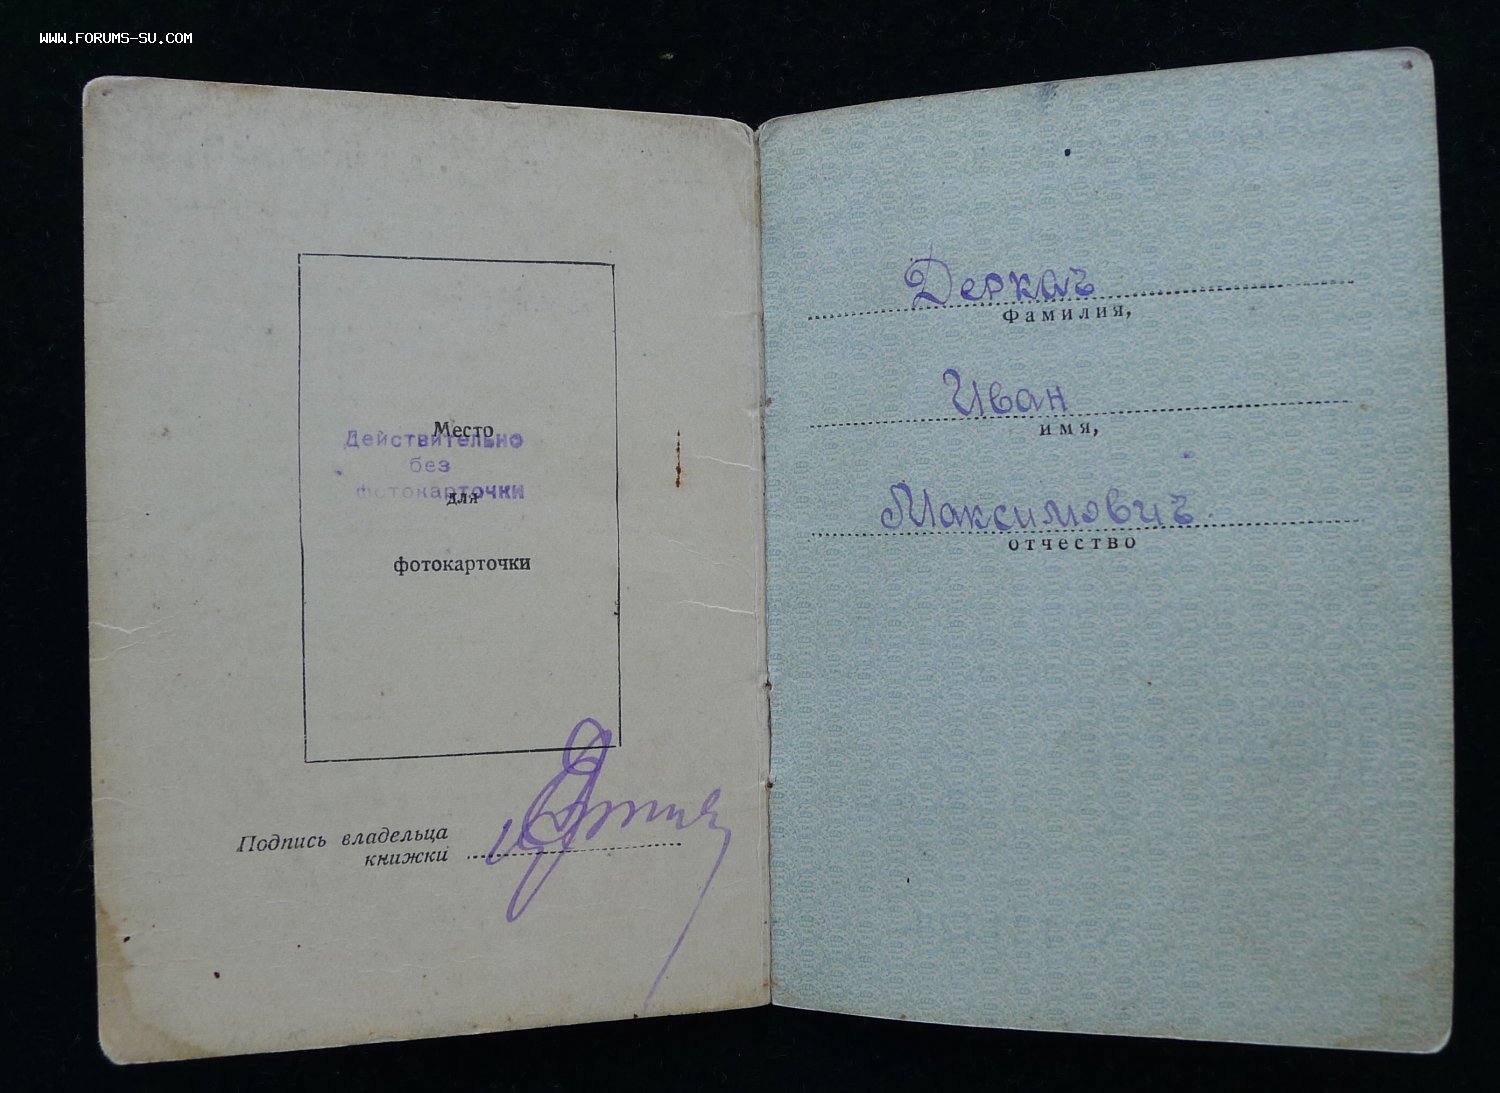 WWW.FORUMS-SU.COM
Место
Действительно
без
фотокарточки
для
фотокарточки
Подпись владельца
книжки
Деркач
Фамилия,
Иван
имя,
Максимович
отчество